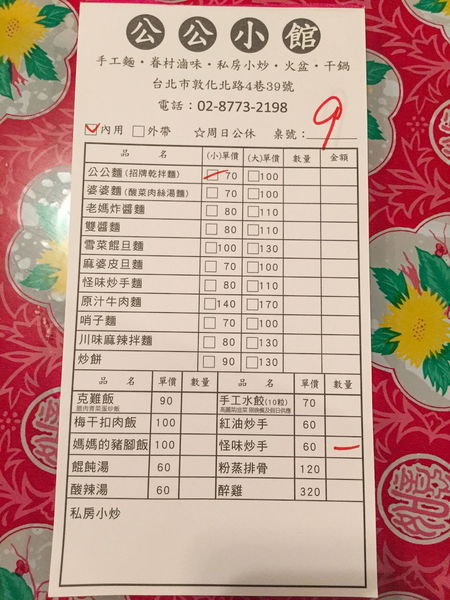 公公小館
手工麵・眷村滷味・私房小炒・火盆・干鍋
台北市敦化北路4巷39號
電話：02-8773-2198
☑內用 □外帶 ☆周日公休 桌號：9
品 名 (小)單價 (大)單價 數量 金額
公公麵(招牌乾拌麵) ☑70 □100
婆婆麵(酸菜肉絲湯麵) □70 □100
老媽炸醬麵 □80 □110
雙醬麵 □80 □110
雪菜餛旦麵 □100 □130
麻婆皮旦麵 □70 □100
怪味炒手麵 □80 □110
原汁牛肉麵 □140 □170
哨子麵 □70 □100
川味麻辣拌麵 □80 □110
炒餅 □90 □130
品 名 單價 數量 品 名 單價 數量
克難飯 90 手工水餃(10粒) 70
梅干扣肉飯 100 紅油炒手 60
媽媽的豬腳飯 100 怪味炒手 60 一
餛飩湯 60 粉蒸排骨 120
酸辣湯 60 醉雞 320
私房小炒